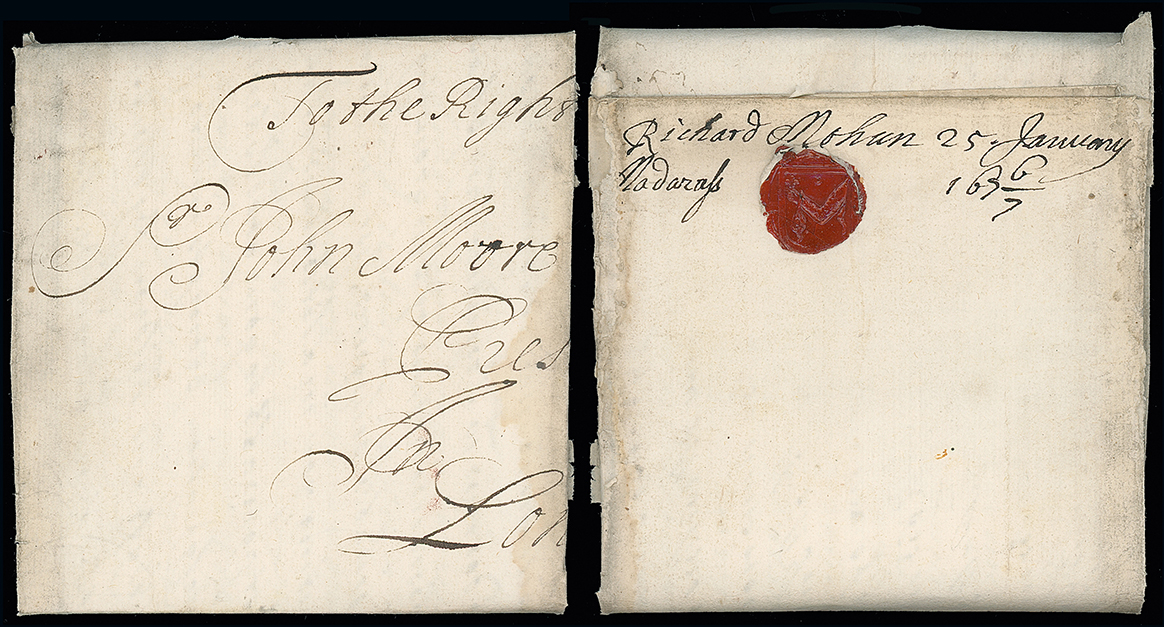 To the Right
Sr John Moore
Pres
In
Lon
Richard Mohun 25 January
Madarass 1686/7